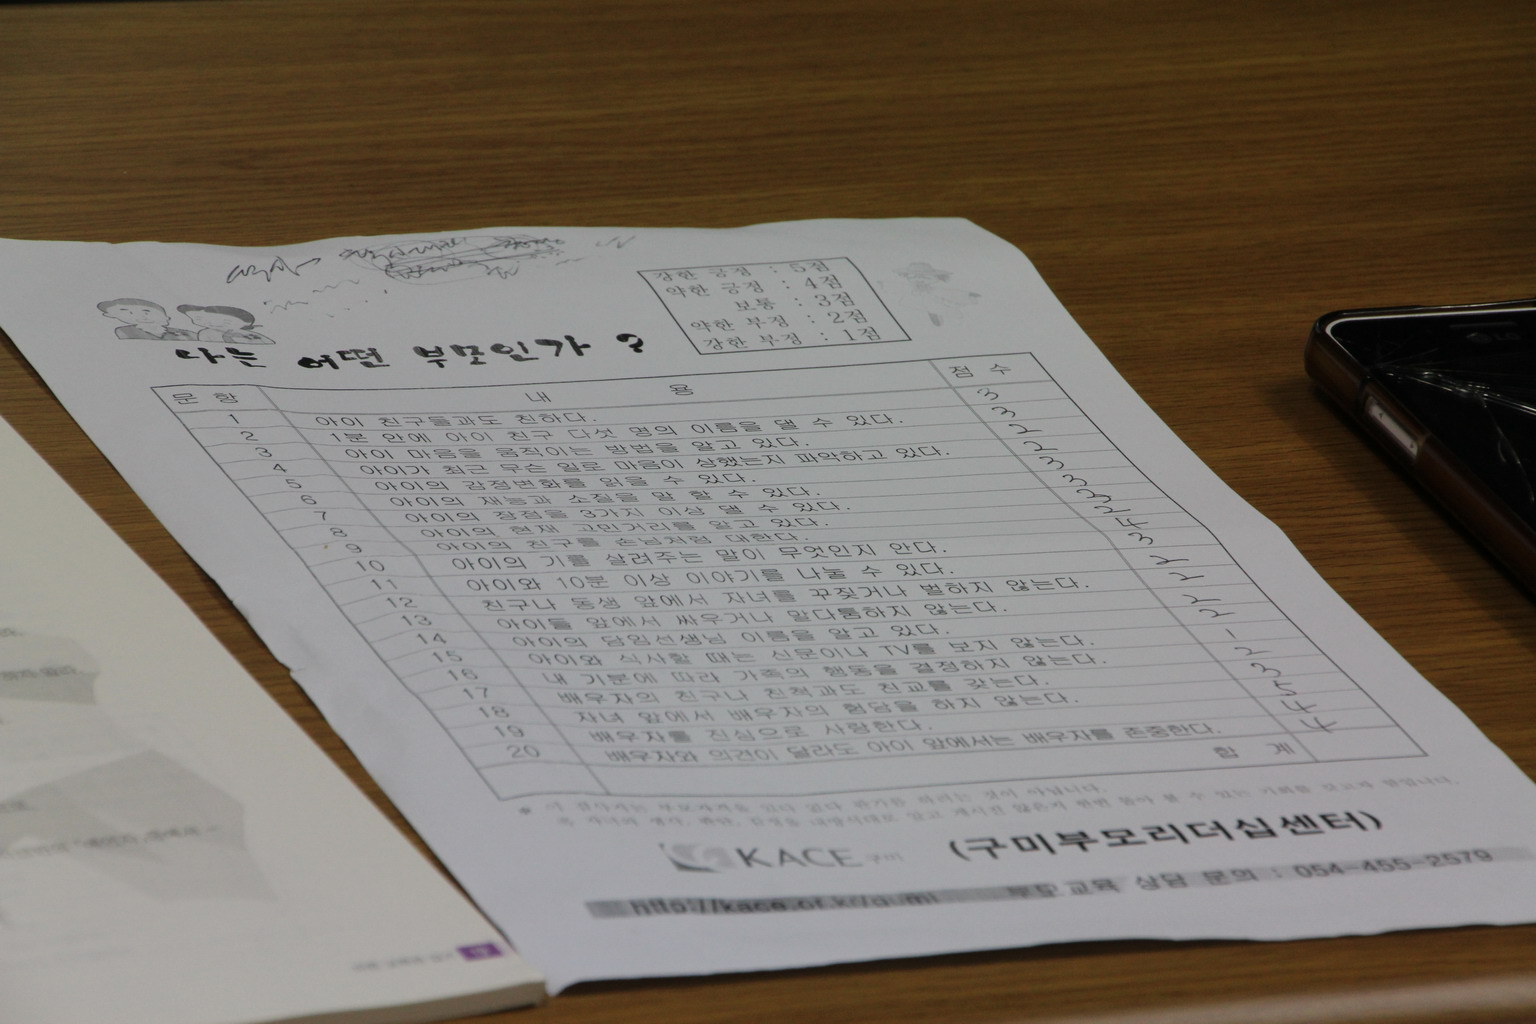 강한 긍정 : 5점
약한 긍정 : 4점
보통 : 3점
약한 부정 : 2점
강한 부정 : 1점
나는 어떤 부모인가 ?
문 항 내 용 점 수
1 아이 친구들과도 친하다. 3
2 1분 안에 아이 친구 다섯 명의 이름을 댈 수 있다. 3
3 아이 마음을 움직이는 방법을 알고 있다. 2
4 아이가 최근 무슨 일로 마음이 상했는지 파악하고 있다. 2
5 아이의 감정변화를 읽을 수 있다. 3
6 아이의 재능과 소질을 말 할 수 있다. 3
7 아이의 장점을 3가지 이상 댈 수 있다. 3
8 아이의 현재 고민거리를 알고 있다. 2
9 아이의 친구를 손님처럼 대한다. 4
10 아이의 기를 살려주는 말이 무엇인지 안다. 3
11 아이와 10분 이상 이야기를 나눌 수 있다. 2
12 친구나 동생 앞에서 자녀를 꾸짖거나 벌하지 않는다. 2
13 아이들 앞에서 싸우거나 말다툼하지 않는다. 2
14 아이의 담임선생님 이름을 알고 있다. 2
15 아이와 식사할 때는 신문이나 TV를 보지 않는다. 1
16 내 기분에 따라 가족의 행동을 결정하지 않는다. 2
17 배우자의 친구나 친척과도 친교를 갖는다. 3
18 자녀 앞에서 배우자의 험담을 하지 않는다. 5
19 배우자를 진심으로 사랑한다. 4
20 배우자와 의견이 달라도 아이 앞에서는 배우자를 존중한다. 4
합 계
KACE 구미 (구미부모리더십센터)
http://kace.or.kr/gumi 부모 교육 상담 문의 : 054-455-2579